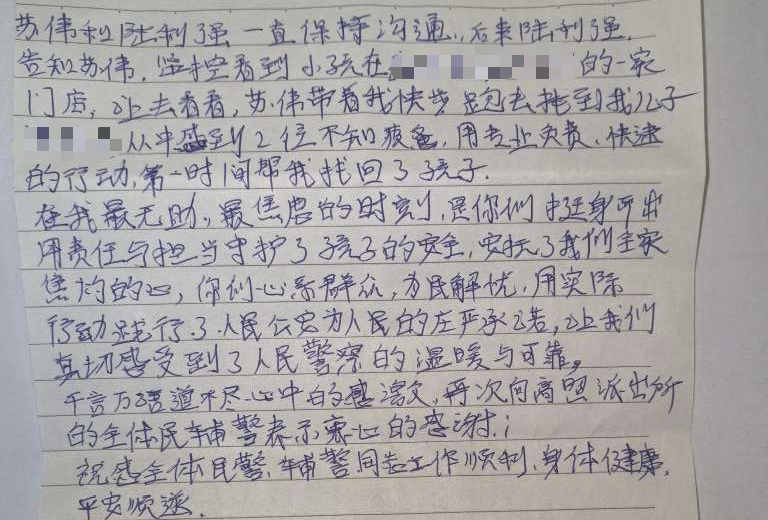 苏伟和陆利强一直保持沟通,后来陆利强,
告知苏伟,监控看到小孩在 的一家
门店,让去看看,苏伟带着我快步跑去找到我儿子
从中感到2位不知疲惫,用专业负责、快速
的行动,第一时间帮我找回了孩子.
在我最无助,最焦虑的时刻,是你们挺身而出
用责任与担当守护了孩子的安全,安抚了我们全家
焦灼的心,你们心系群众,为民解忧,用实际
行动践行了人民公安为人民的庄严承诺,让我们
真切感受到了人民警察的温暖与可靠,
千言万语道不尽心中的感激,再次向高照派出所
的全体民辅警表示衷心的感谢.!
祝愿全体民警、辅警同志工作顺利,身体健康,
平安顺遂.